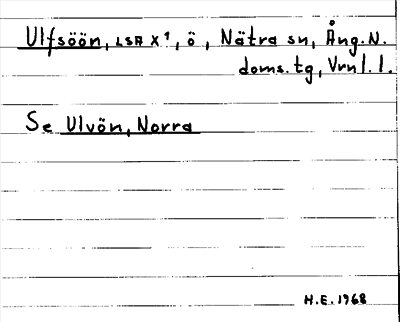 Ulfsöön, LSA X¹, ö, Nätra sn, Ång.N.
doms.tg, Vrnl.l.
Se Ulvön, Norra
H.E. 1968